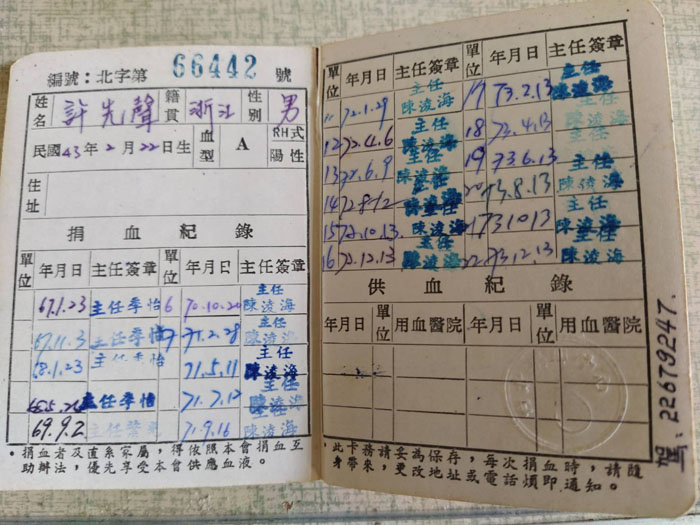 編號：北字第 66442 號
姓名 許先聲 籍貫 浙江 性別 男
民國43年2月22日生 血型 A RH式陽性
住址
捐血紀錄
單位 年月日 主任簽章 單位 年月日 主任簽章
67.1.23 主任季怡 6 70.10.20 主任陳淩海
67.11.3 主任季怡 7 71.2.28 主任陳淩海
68.1.23 主任季怡 71.5.11 主任陳淩海
主任季怡 71.7.12 主任陳淩海
69.9.2 主任 71.9.16 陳淩海
捐血者及直系家屬，得依照本會捐血互
助辦法，優先享受本會供應血液。
單位 年月日 主任簽章 單位 年月日 主任簽章
11 72.1.29 主任陳淩海 17 73.2.13 主任陳淩海
12 72.4.6 主任陳淩海 18 73.4.13 陳淩海
13 72.6.9 主任陳淩海 19 73.6.13 主任陳淩海
14 主任陳淩海 20 73.8.13 主任陳淩海
15 72.10.13 主任陳淩海 73.10.13 主任陳淩海
16 72.12.13 主任陳淩海 22 73.12.13 主任陳淩海
供血紀錄
年月日 單位 用血醫院 年月日 單位 用血醫院
此卡務請妥為保存，每次捐血時，請隨
身帶來，更改地址或電話煩即通知。
22679247.